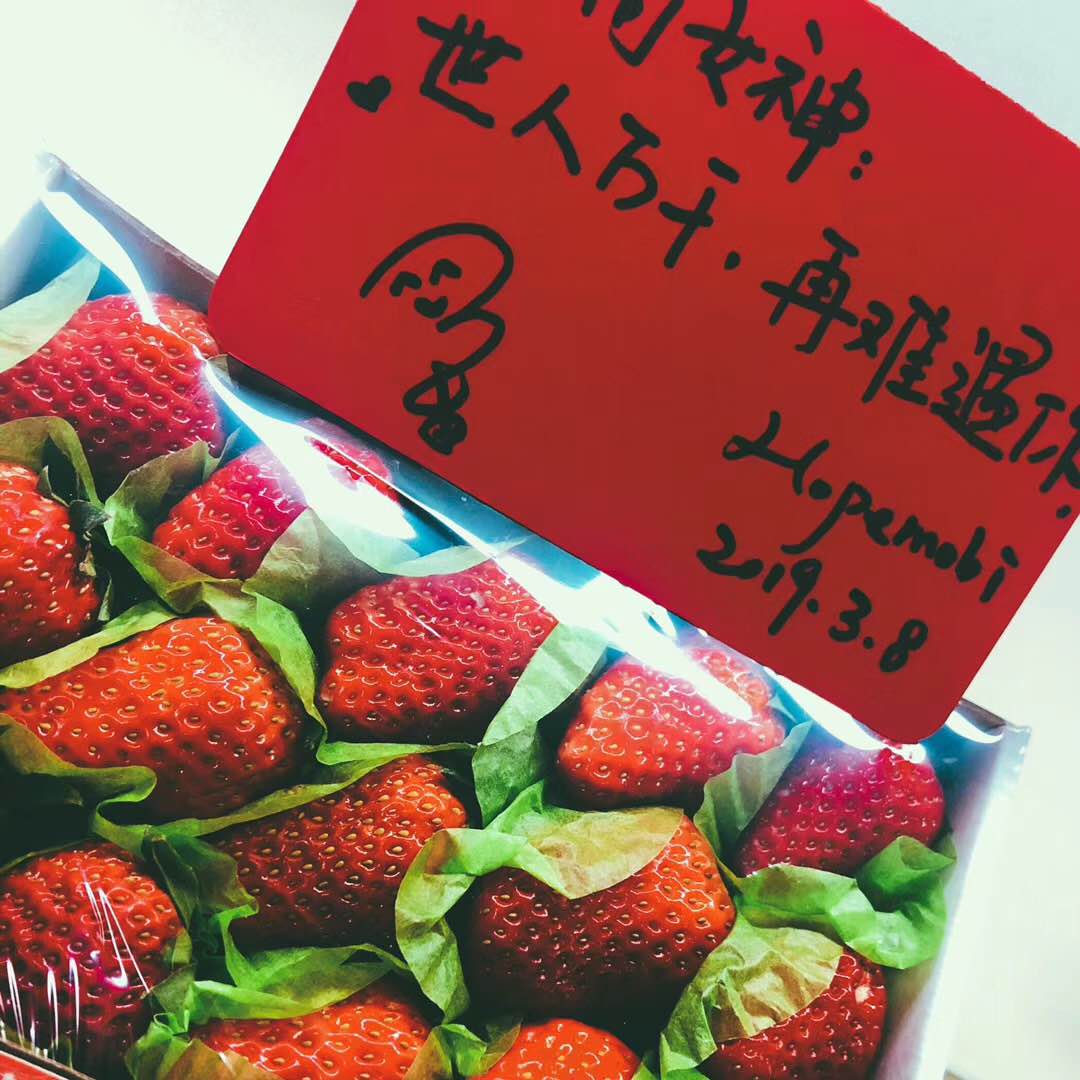 女神：
世人万千，再难遇你！
Hopemobi
2019.3.8